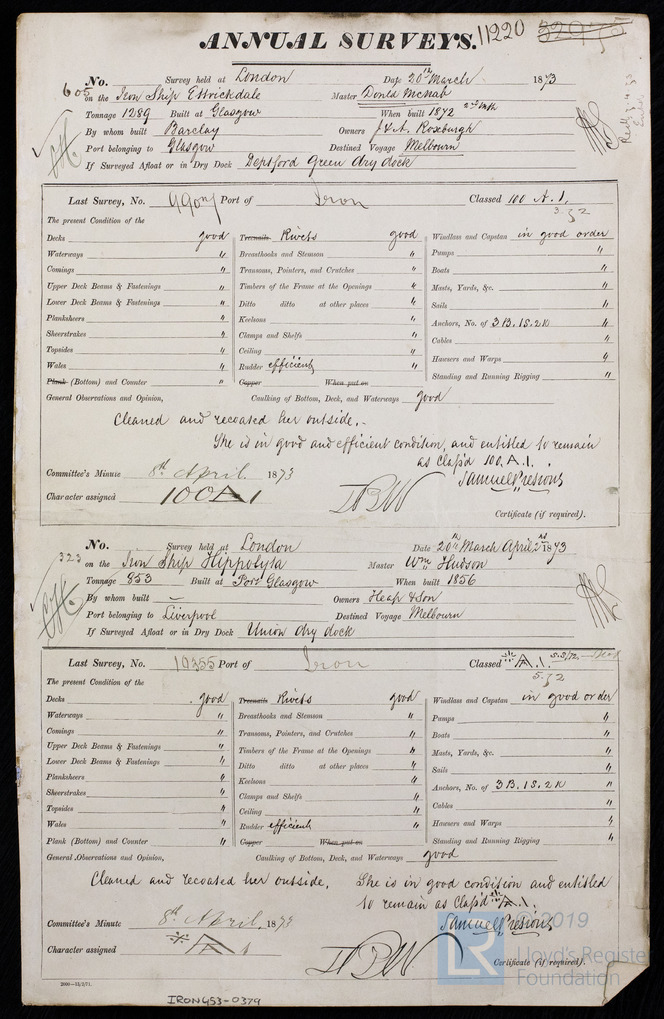 ANNUAL SURVEYS. 11220
605 No. Survey held at London Date 20th March 1873
on the Iron Ship Ettrickdale Master Donld McNab
Tonnage 1289 Built at Glasgow When built 1872
By whom built Barclay Owners J & A. Roxburgh
Port belonging to Glasgow Destined Voyage Melbourn
If Surveyed Afloat or in Dry Dock Deptford Green dry dock
Last Survey, No. Port of Iron Classed 100 A.1.
The present Condition of the
Decks good Treenails Rivets good Windlass and Capstan in good order
Waterways " Breasthooks and Stemson " Pumps "
Comings " Transoms, Pointers, and Crutches " Boats "
Upper Deck Beams & Fastenings " Timbers of the Frame at the Openings " Masts, Yards, &c. "
Lower Deck Beams & Fastenings " Ditto ditto at other places " Sails "
Planksheers " Keelsons " Anchors, No. of 3B. 1S. 2K "
Sheerstrakes " Clamps and Shelfs " Cables "
Topsides " Ceiling " Hawsers and Warps "
Wales " Rudder efficient Standing and Running Rigging "
Plank (Bottom) and Counter " Copper When put on
General Observations and Opinion, Caulking of Bottom, Deck, and Waterways good
Cleaned and recoated her outside.
She is in good and efficient condition, and entitled to remain
as Class'd 100.A.1.
Committee's Minute 8th April 1873 Samuel Presious
Character assigned 100A1
Certificate (if required).
323 No. Survey held at London Date 20th March April 2nd 1873
on the Iron Ship Hippolyta Master Wm Hudson
Tonnage 853 Built at Port Glasgow When built 1856
By whom built — Owners Heap & Son
Port belonging to Liverpool Destined Voyage Melbourn
If Surveyed Afloat or in Dry Dock Union dry dock
Last Survey, No. 10355 Port of Iron Classed A.1.
The present Condition of the
Decks good Treenails Rivets good Windlass and Capstan in good order
Waterways " Breasthooks and Stemson " Pumps "
Comings " Transoms, Pointers, and Crutches " Boats "
Upper Deck Beams & Fastenings " Timbers of the Frame at the Openings " Masts, Yards, &c. "
Lower Deck Beams & Fastenings " Ditto ditto at other places " Sails "
Planksheers " Keelsons " Anchors, No. of 3B. 1S. 2K "
Sheerstrakes " Clamps and Shelfs " Cables "
Topsides " Ceiling " Hawsers and Warps "
Wales " Rudder efficient Standing and Running Rigging "
Plank (Bottom) and Counter " Copper When put on
General Observations and Opinion, Caulking of Bottom, Deck, and Waterways good
Cleaned and recoated her outside. She is in good condition and entitled
to remain as Class'd A.1.
Committee's Minute 8th April 1873 Samuel Presious
Character assigned A 1
Certificate (if required).
2000—15/2/71.
IRON453-0379
© 2019
LR Lloyd's Register
Foundation